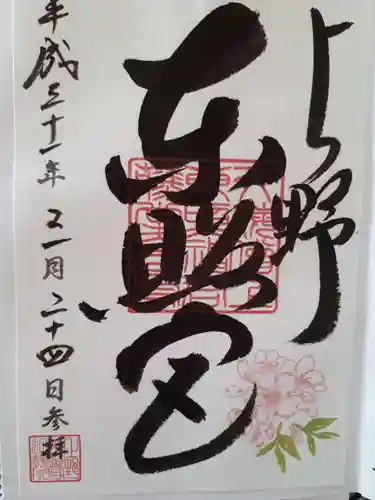 上野
東照宮
平成三十一年 二月二十四日参拝